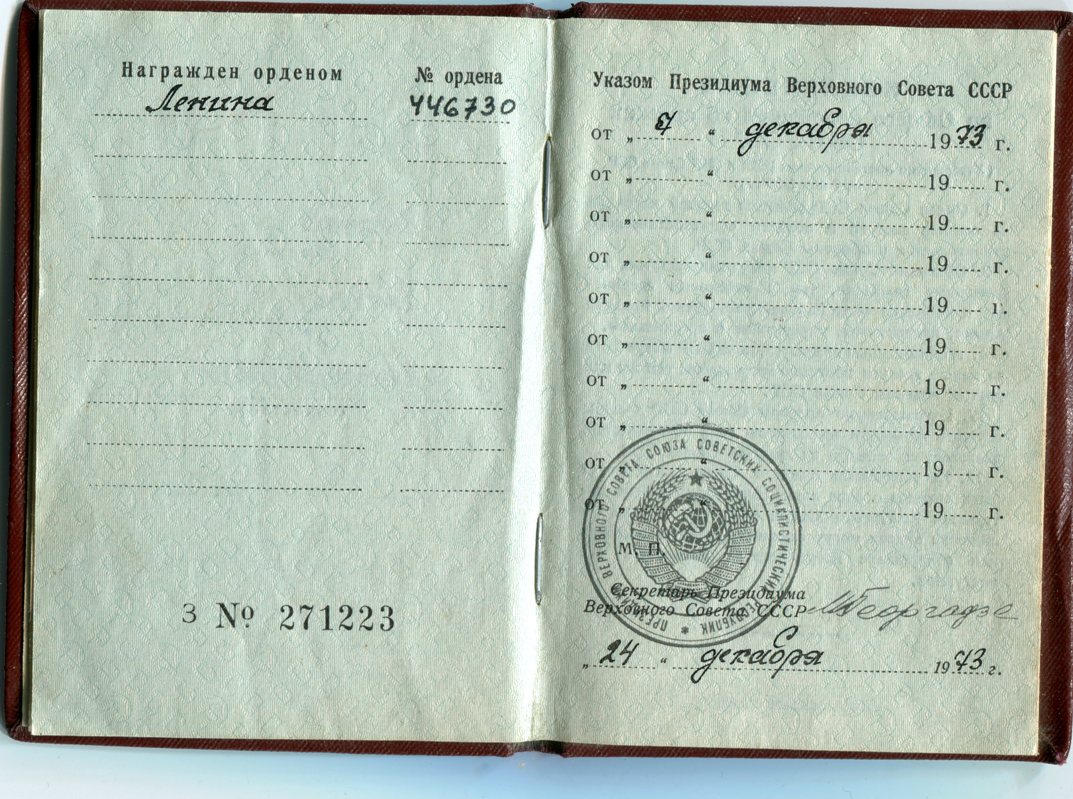 Награжден орденом № ордена
Ленина 446730
З № 271223
Указом Президиума Верховного Совета СССР
от „ 7 “ декабря 1973 г.
от „ “ 19 г.
от „ “ 19 г.
от „ “ 19 г.
от „ “ 19 г.
от „ “ 19 г.
от „ “ 19 г.
от „ “ 19 г.
от „ “ 19 г.
от „ “ 19 г.
ПРЕЗИДИУМ ВЕРХОВНОГО СОВЕТА СОЮЗА СОВЕТСКИХ СОЦИАЛИСТИЧЕСКИХ РЕСПУБЛИК *
М. П.
Секретарь Президиума
Верховного Совета СССР МГеоргадзе
„ 24 “ декабря 1973 г.